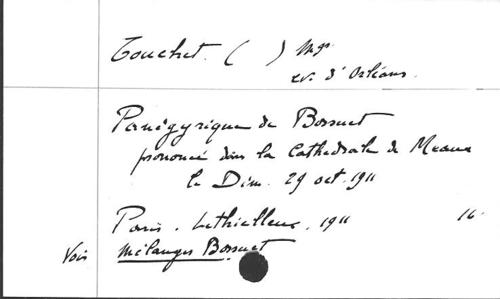 Touchet. ( ) Mgr
ev. d'Orléans.
Panégyrique de Bossuet
prononcé dans la Cathédrale de Meaux
le Dim. 29 oct. 1911
Paris. Lethielleux, 1911 16°
Vois Mélanges Bossuet